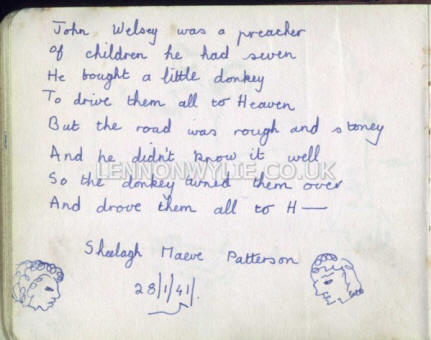 John Welsey was a preacher
Of children he had seven
He bought a little donkey
To drive them all to Heaven
But the road was rough and stoney
And he didn't know it well
LENNONWYLIE.CO.UK
So the donkey turned them over
And drove them all to H—
Sheelagh Maeve Patterson
28/1/41/.